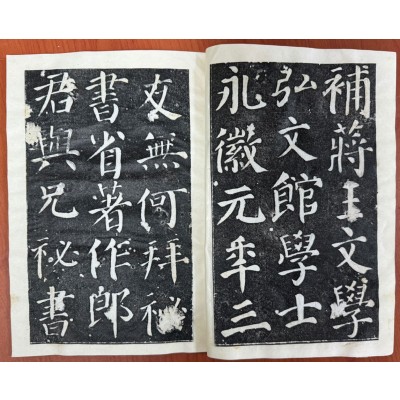 補蔣王文學
弘文館學士
永徽元年三
友無何拜秘
書省著作郎
君與兄秘書